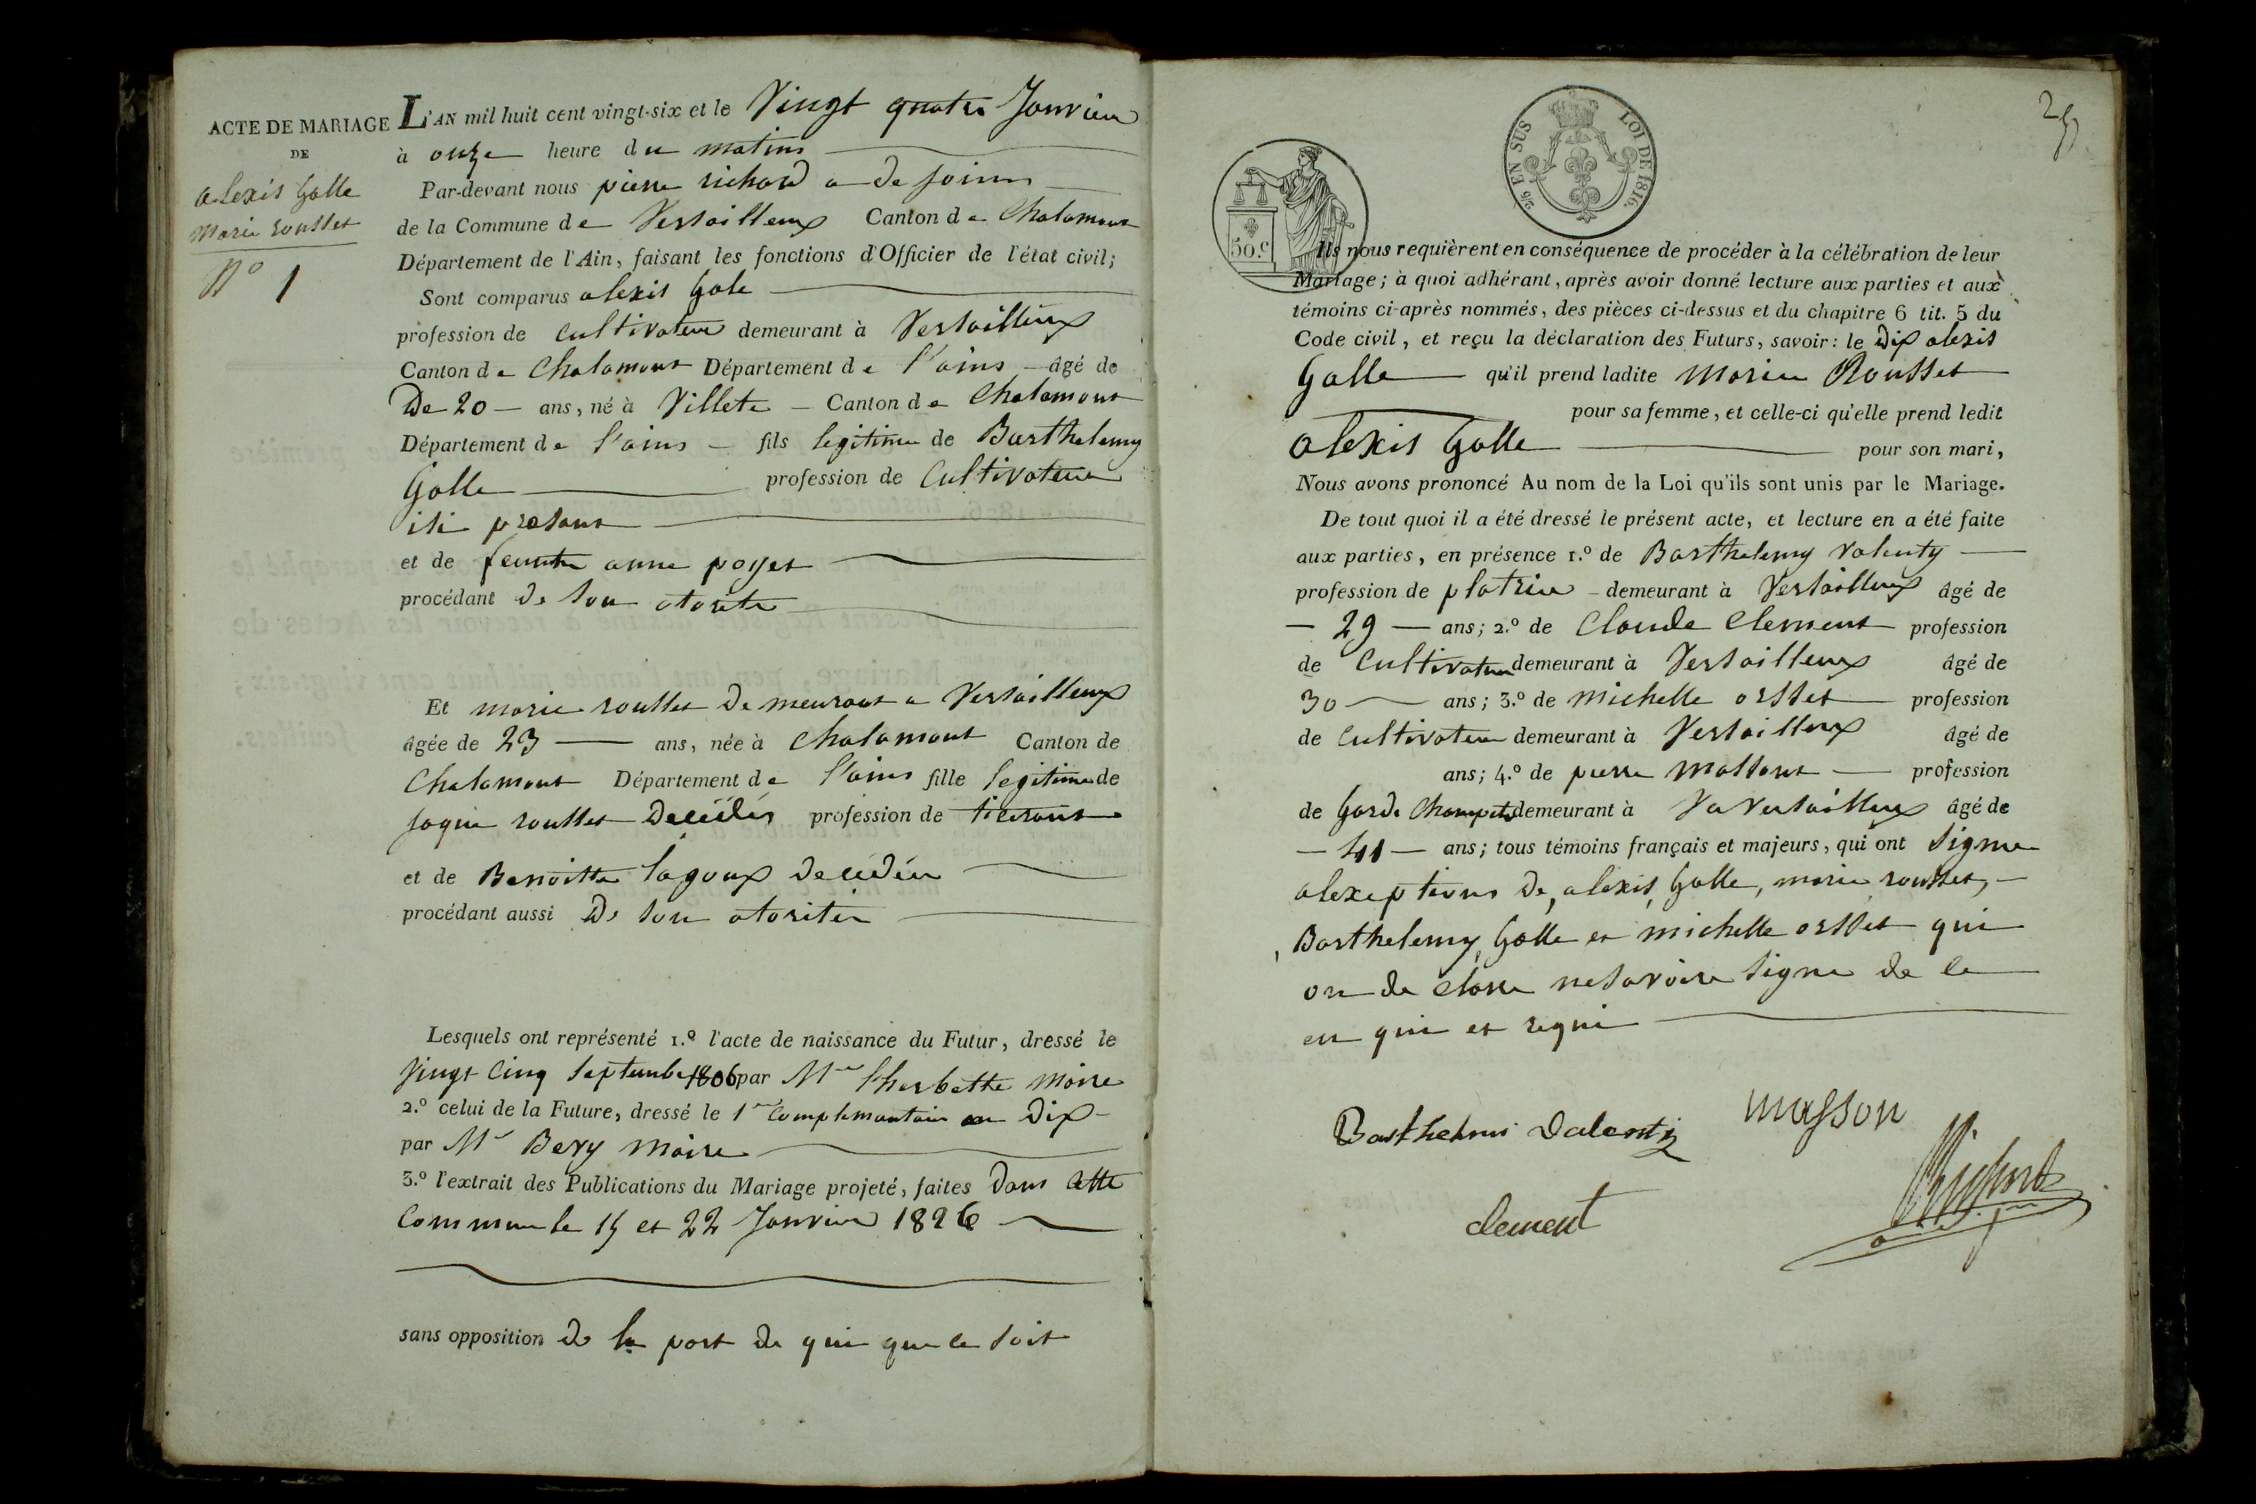 ACTE DE MARIAGE
DE
alexis Galle
marie rousset
N° 1
L'AN mil huit cent vingt-six et le Vingt quatre Janvier
à onze heure du matins
Par-devant nous pierre richard a de joins
de la Commune de Versailleux Canton de Chalamont
Département de l'Ain, faisant les fonctions d'Officier de l'état civil;
Sont comparus alexis Gale
profession de cultivateur demeurant à Versailleux
Canton de Chalamont Département de l'ains âgé de
De 20 ans, né à Villete Canton de Chalamont
Département de l'ains fils legitime de Barthelemy
Galle profession de Cultivateur
isi presant
et de anne poyet
procédant de son otorite
Et marie rousset demeurant a Versailleux
âgée de 23 ans, née à Chalamont Canton de
Chalamont Département de l'ains fille legitime de
jaque rousset Decédés profession de ticerant
et de Benoitte lagoux decédée
procédant aussi De son otoritée
Lesquels ont représenté 1.º l'acte de naissance du Futur, dressé le
Vingt Cinq Septembe 1806 par Mr l'herbette maire
2.º celui de la Future, dressé le 1er complemantair an Dix
par Mr Bery maire
3.º l'extrait des Publications du Mariage projeté, faites dans cette
Commune le 15 et 22 Janvier 1826
sans opposition de la part de qui que ce soit
25
2/5 EN SUS LOI DE 1816.
50.C
Ils nous requièrent en conséquence de procéder à la célébration de leur
Mariage; à quoi adhérant, après avoir donné lecture aux parties et aux
témoins ci-après nommés, des pièces ci-dessus et du chapitre 6 tit. 5 du
Code civil, et reçu la déclaration des Futurs, savoir: le Dix alexis
Galle qu'il prend ladite marie Rousset
pour sa femme, et celle-ci qu'elle prend ledit
alexis Galle pour son mari,
Nous avons prononcé Au nom de la Loi qu'ils sont unis par le Mariage.
De tout quoi il a été dressé le présent acte, et lecture en a été faite
aux parties, en présence 1.º de Barthelemy Valenty
profession de platrier demeurant à Versailleux âgé de
29 ans; 2.º de Claude Clement profession
de Cultivateur demeurant à Versailleux âgé de
30 ans; 3.º de michelle orsset profession
de Cultivateur demeurant à Versailleux âgé de
ans; 4.º de pierre massont profession
de Garde Champete demeurant à Va Versailleux âgé de
41 ans; tous témoins français et majeurs, qui ont signe
alexeptions de, alexis, Galle, marie rousset,
Barthelemy, Galle et michelle orsset qui
on de clare nesavoire signe de ce
en qui et requi
Barthelmi Valenti
masson
clement
Richard